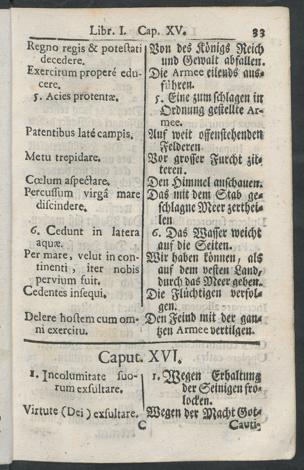 Libr. I. Cap. XV. 33
Regno regis & potestati
decedere.
Exercitum properé edu-
cere.
5. Acies protentæ.
Patentibus laté campis.
Metu trepidare.
Cœlum aspectare.
Percussum virgâ mare
discindere.
6. Cedunt in latera
aquæ.
Per mare, velut in con-
tinenti, iter nobis
pervium fuit.
Cedentes insequi.
Delere hostem cum om-
ni exercitu.
Von des Königs Reich
und Gewalt abfallen.
Die Armee eilends aus-
führen.
5. Eine zum schlagen in
Ordnung gestellte Ar-
mee.
Auf weit offenstehenden
Felderen
Vor grosser Furcht zit-
teren.
Den Himmel anschauen.
Das mit dem Stab ge-
schlagne Meer zerthei-
len
6. Das Wasser weicht
auf die Seiten.
Wir haben können, als
auf dem vesten Land,
durch das Meer gehen.
Die Flüchtigen verfol-
gen.
Den Feind mit der gan-
zen Armee vertilgen.
Caput. XVI.
1. Incolumitate suo-
rum exsultare.
Virtute (Dei) exsultare.
1. Wegen Erhaltung
der Seinigen fro-
locken.
Wegen der Macht Got-
C Cauti-